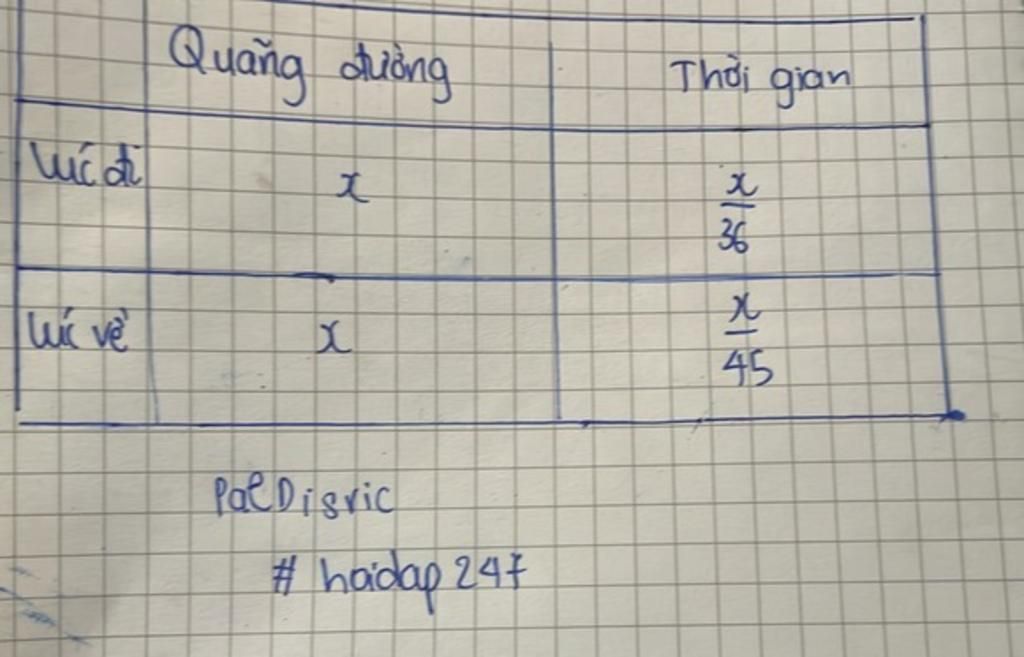 Quãng đường Thời gian
lúc đi x x/36
lúc về x x/45
PaeDisric
# hoidap247